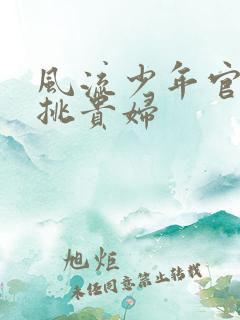 風流少年官
挑貴婦
旭炬
未经同意禁止转载